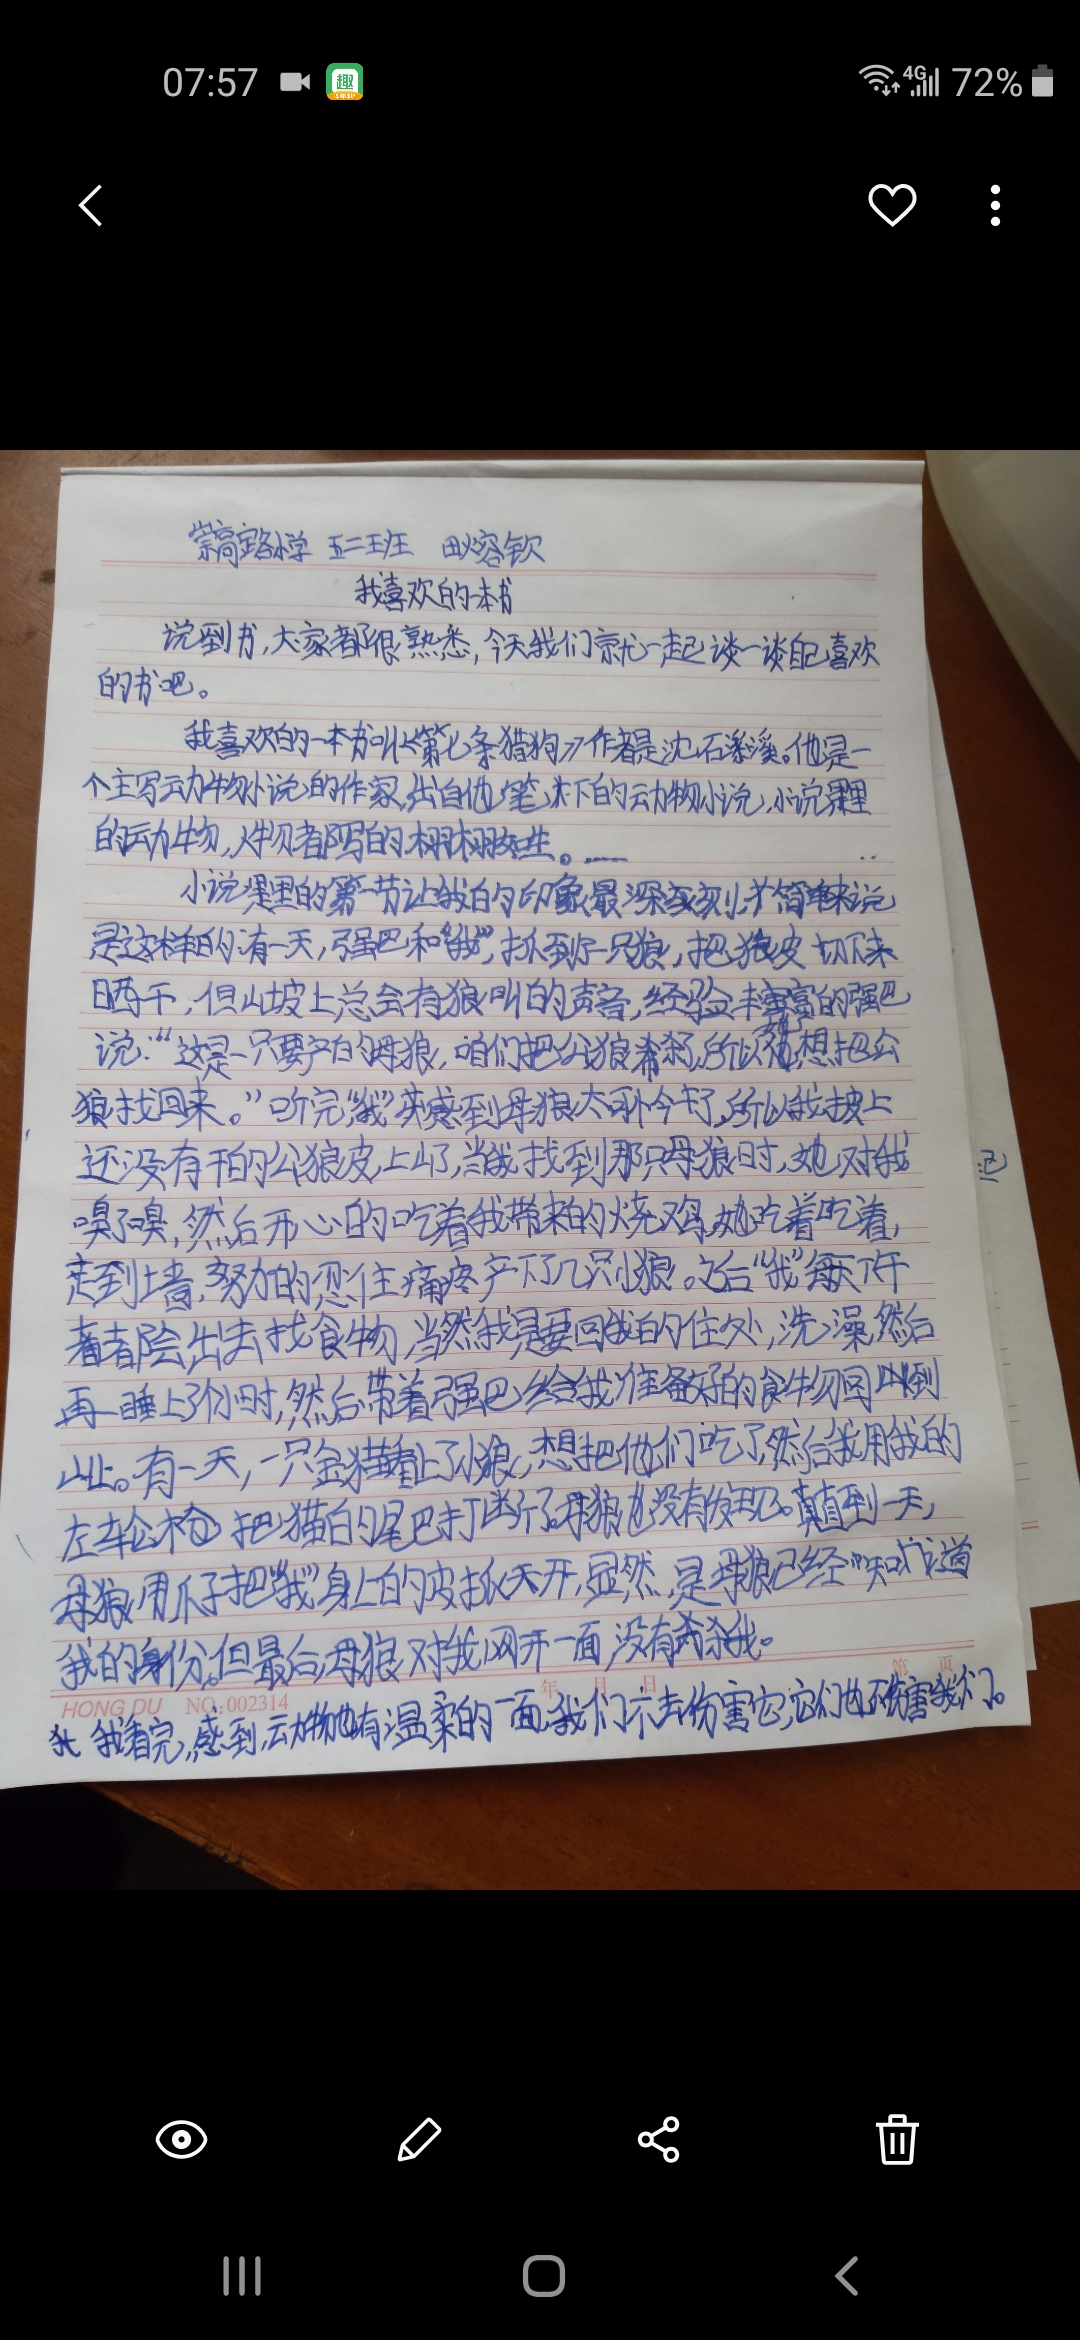 07:57
趣
4G 72%
崇高路小学 五二班 田熔钦
我喜欢的一本书
说到书,大家都很熟悉,今天我们就一起谈一谈自己喜欢
的书吧。
我喜欢的一本书叫《第七条猎狗》作者是沈石溪。他是一
个主写动物小说的作家,出自他笔下的动物小说,小说里
的动物,人物都写的栩栩如生。
小说里的第一节让我的印象最深刻,简单来说
是这样的有一天,强巴和“我”,抓到了一只狼,把狼皮切下来
晒干,但山坡上总会有狼叫的声音,经验丰富的强巴
说:“这是一只要产的母狼,咱们把公狼杀了,所以她想把公
狼找回来。”听完“我”感到母狼太可怜了,所以我披上
还没有干的公狼皮上山了,当我找到那只母狼时,她对我
嗅了嗅,然后开心的吃着我带来的烧鸡,她吃着吃着,
走到土墙,努力的忍住痛疼产下了几只小狼。之后“我”每天下午
都会出去找食物,当然我是要回我的住处,洗澡,然后
再睡上个小时,然后带着强巴给我准备好的食物回到
山上。有一天,一只金猫看上了小狼,想把他们吃了然后我用我的
左轮枪把猫的尾巴打断了母狼也没有发现。直到一天,
母狼用爪子把“我”身上的皮抓开,显然,是母狼已经知道
我的身份。但最后母狼对我网开一面没有杀我。
HONG DU NO.002314 年 月 日 第 页
我看完,感到,动物也有温柔的一面,我们不去伤害它,它们也不伤害我们。